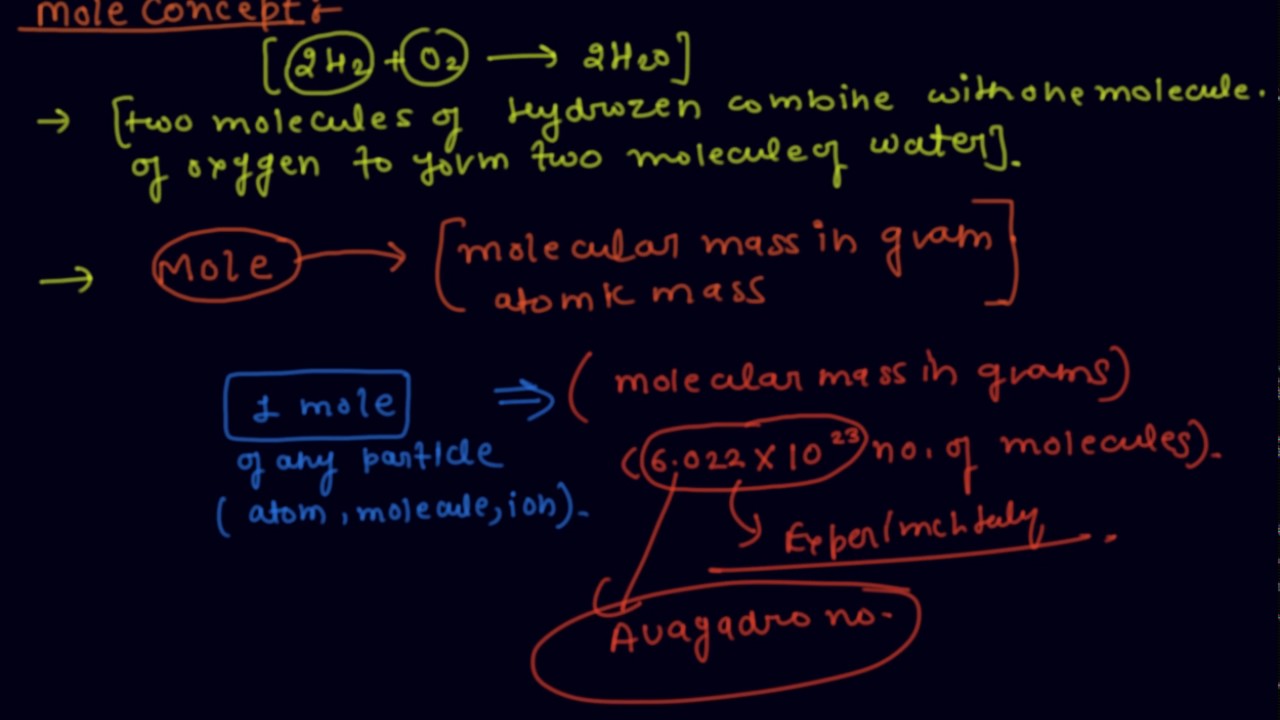 Mole Concept :-
[2H₂ + O₂ → 2H₂O]
→ [two molecules of Hydrozen combine with one molecule.
of oxygen to form two molecule of water].
→ Mole → [molecular mass in gram
atomic mass]
1 mole ⇒ (molecular mass in grams)
of any particle (6.022 X 10²³ no. of molecules).
(atom, molecule, ion).
Experimentaly.
Avagadro no.